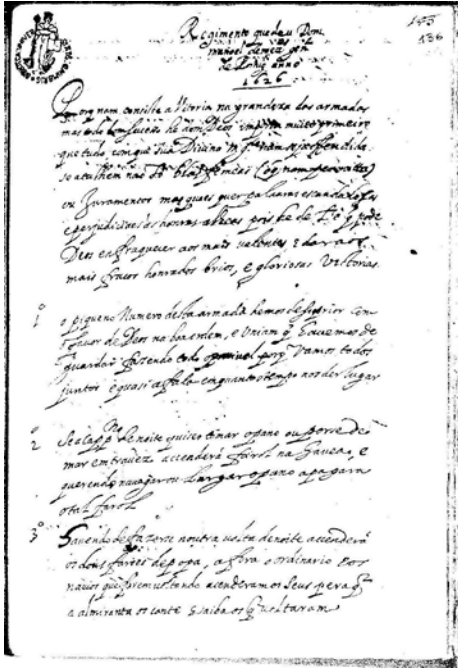 Regimento que deu Dom
Manoel de menezes
anno
1626
136
Porq nam consiste a Vitoria na grandeza das armadas
mas o bom sucesso he dom de Deos, importa muito primeiro
que tudo, com que sua Divina Mg.de nam seja offendida
se atalhem não só blasfemias (
ou Juramentos mas quaes quer palavras escandalosas
e perjudiciais as honras alheas pois he de Fé q pode
Deos enfraquecer aos mais valentes, e dar aos
mais fracos honrados brios, e gloriosas Victorias.
1º o piqueno Numero desta armada hemos de suprir com
favor de Deos na boa ordem, e Uniam q havemos de
guardar fazendo todo o possivel porq Vamos todos
juntos e quasi a fala em quanto o tempo nos der lugar
2º Se a Capp.na de noite quiser tomar o pano ou porse de
mar em traves accenderá farol na Gavea, e
querendo navegar ou Largar o pano apagara
o tal farol
3º Havendo de fazerse noutra volta de noite accenderá
os dous faroes de popa, afora o ordinario e os
navios que forem voltando acenderam os seus pera q
a almiranta os conte e saiba os q voltaram